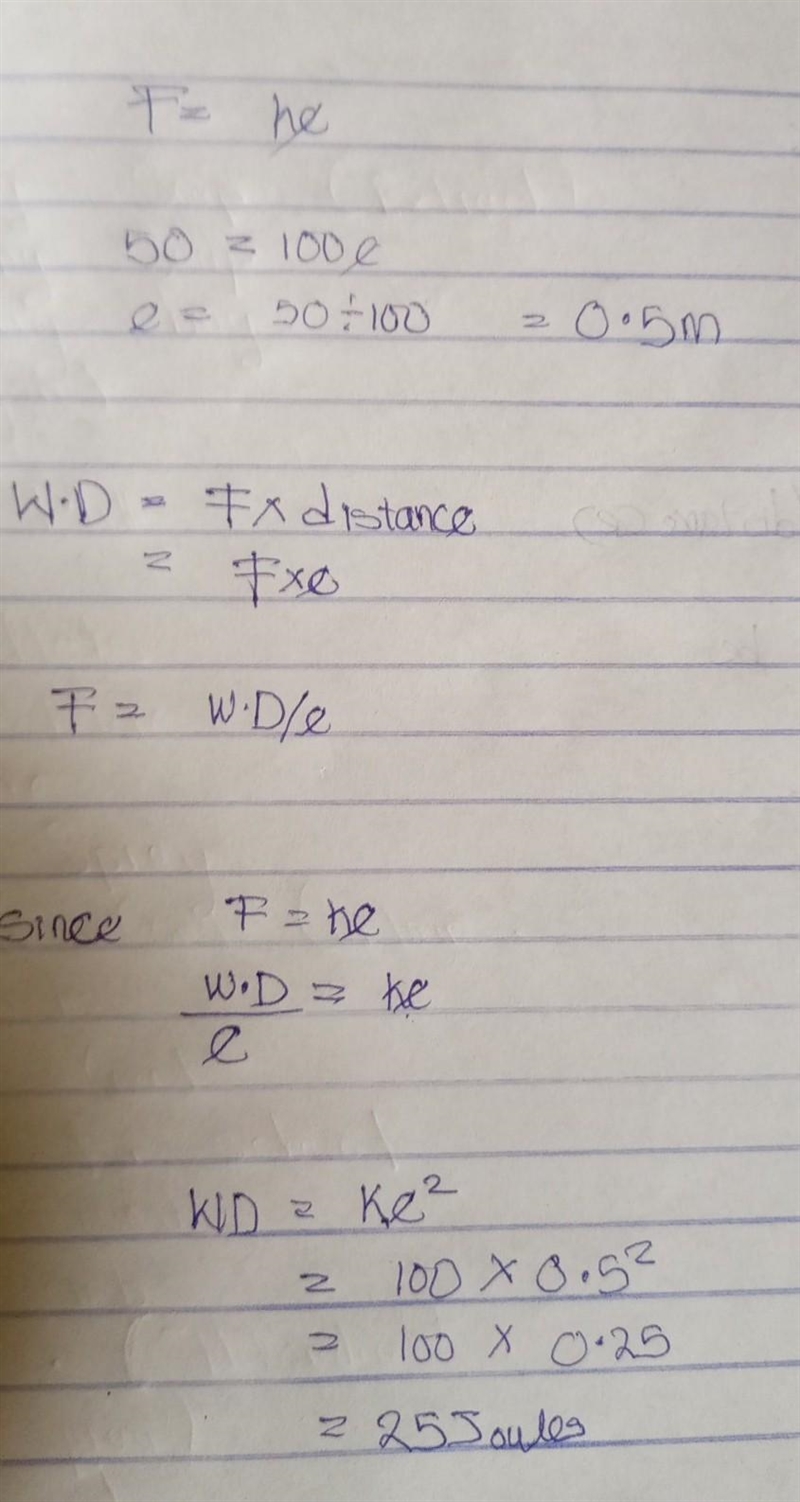 F = ke
50 = 100e
e = 50÷100 = 0.5m
W.D = F x distance
= F x e
F = W.D/e
since F = ke
W.D/e = ke
WD = Ke²
= 100 x 0.5²
= 100 x 0.25
= 25 Joules